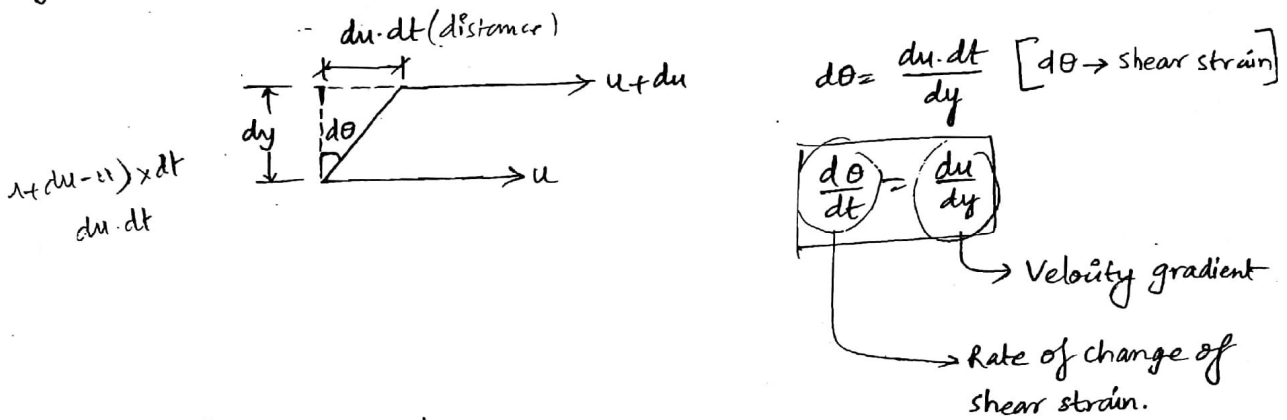 du.dt (distance)
u+du
dy
dθ
u
+du-u) x dt
du.dt
dθ = du.dt/dy [dθ → shear strain]
dθ/dt = du/dy
→ Velocity gradient
→ Rate of change of
shear strain.